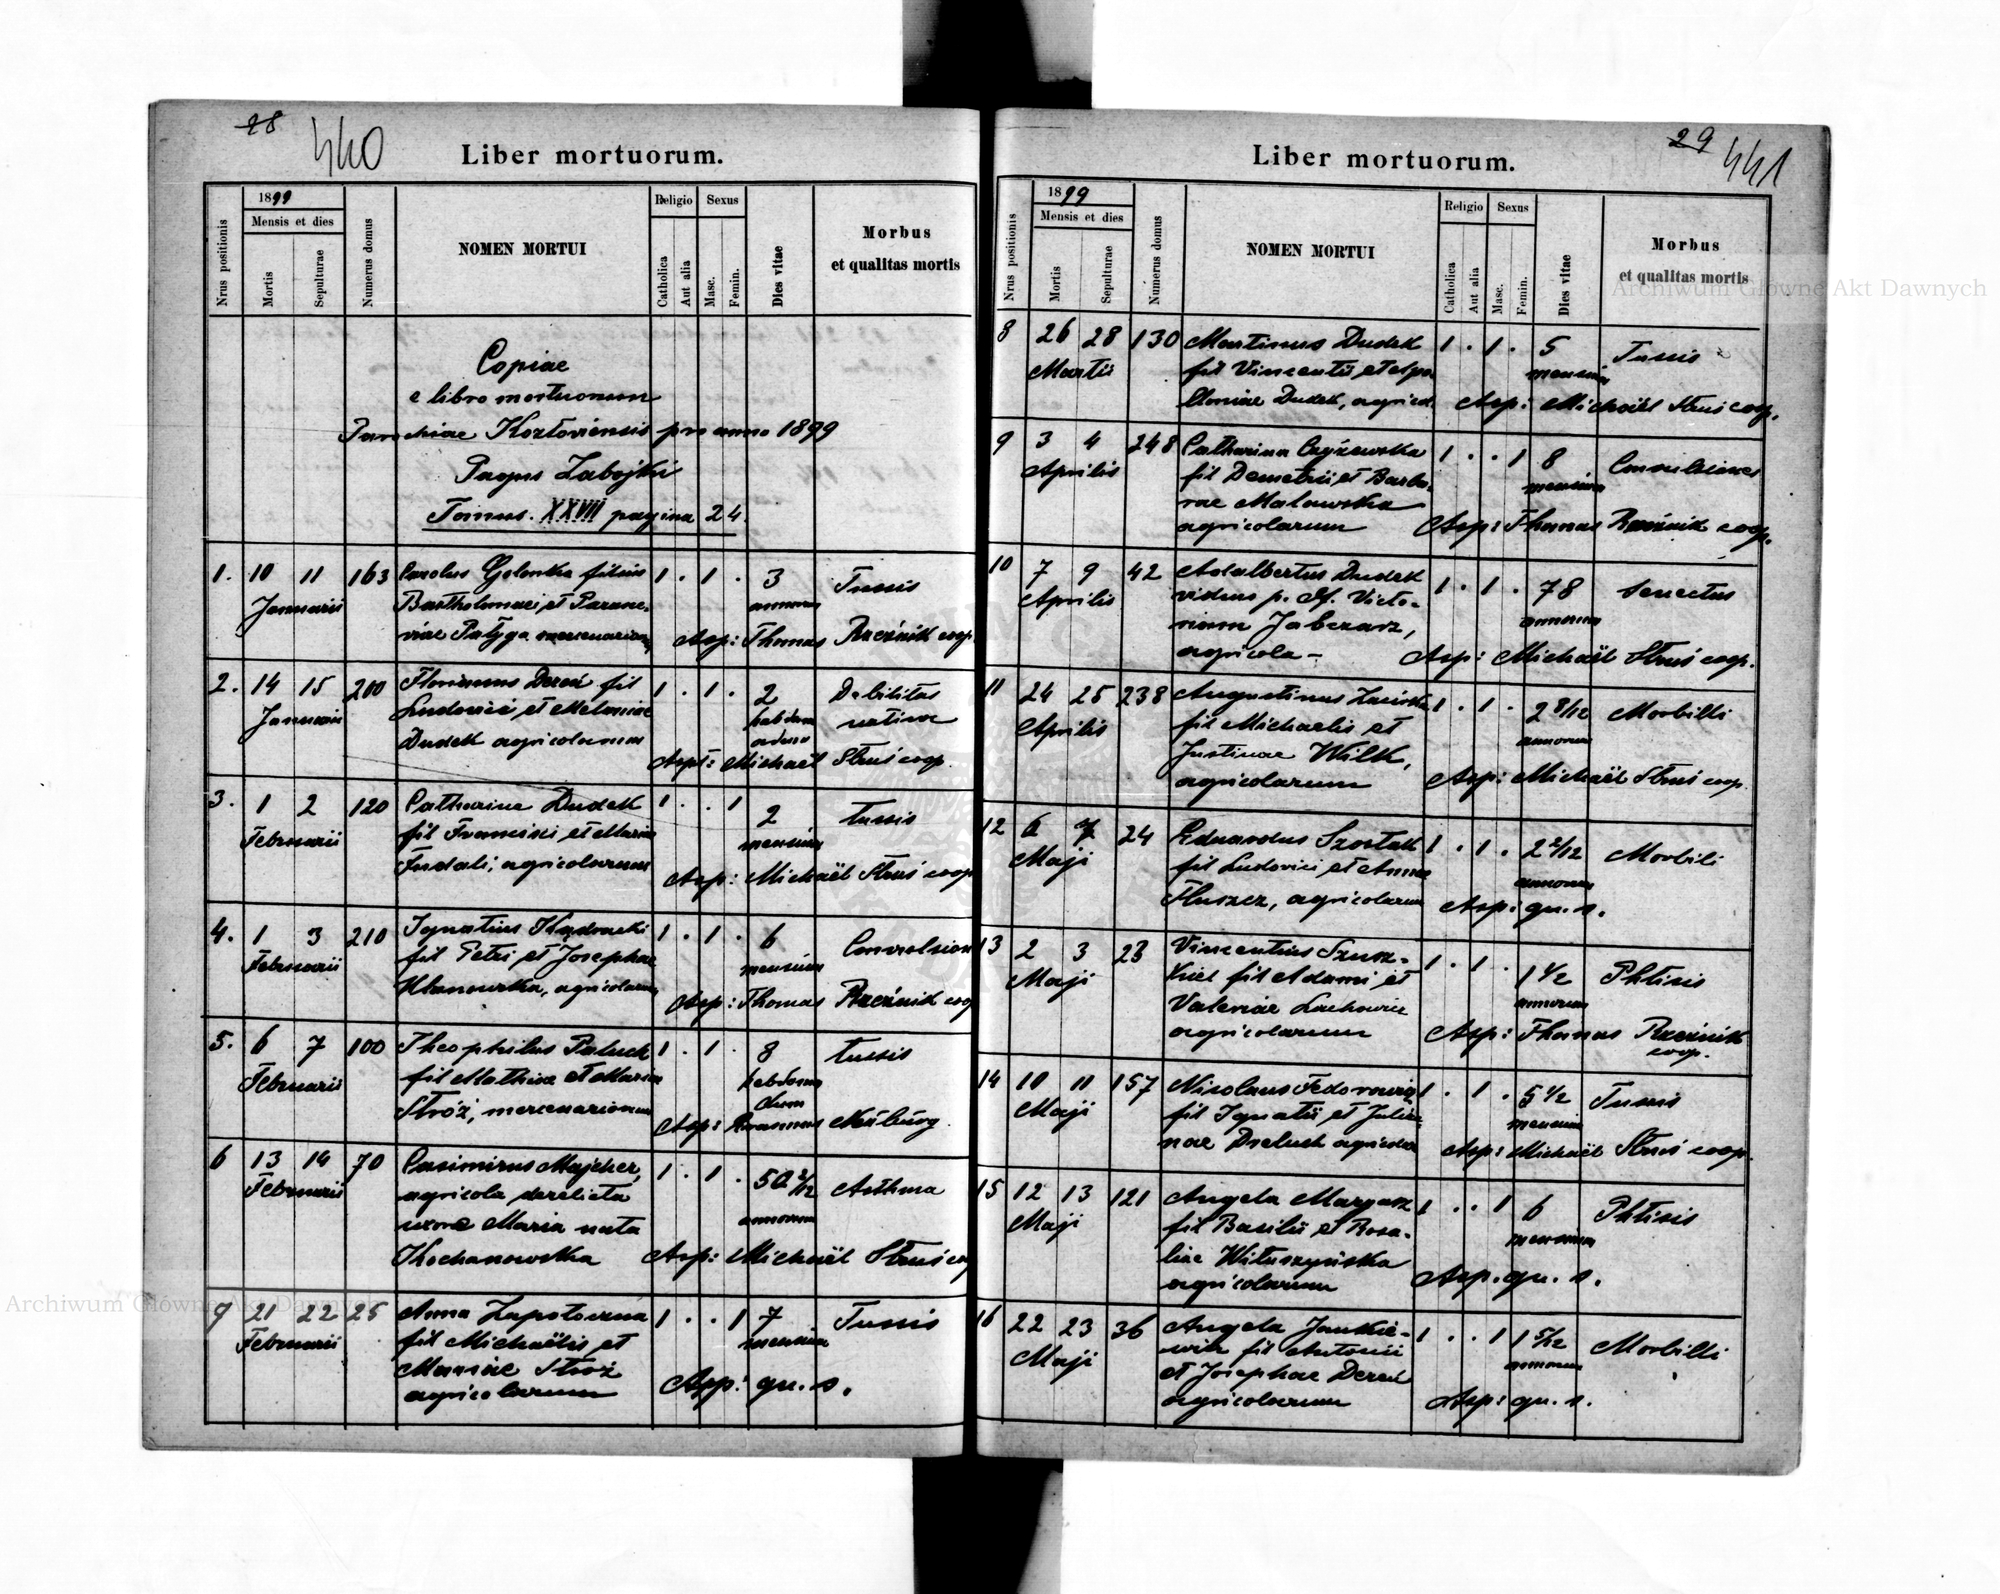 28 440
Liber mortuorum.
1899
Religio Sexus
Mensis et dies
Nrus positionis Mortis Sepulturae Numerus domus NOMEN MORTUI Catholica Aut alia Masc. Femin. Dies vitae Morbus
et qualitas mortis
Copiae
e libro mortuorum
Parochiae Kozłoviensis pro anno 1899
Pagus Zabojki
Tomus. XXVIII pagina 24.
1. 10 11 163 Carolus Golonka filius 1 . 1 . 3 Tussis
Januarii Bartholomaei et Parasce- annorum
viae Patyga mercenariorum Asp: Thomas Rzeźnik coop.
2. 14 15 200 Florianus Dereń fil 1 . 1 . 2 Debilitas
Januarii Ludovici et Melaniae hebdom nativa
Dudek agricolarum adum
Asp: Michaël Struś coop.
3. 1 2 120 Catharina Dudek 1 . . 1 2 tussis
Februarii fil Francisci et Mariae mensium
Fudali, agricolarum Asp: Michaël Struś coop
4. 1 3 210 Ignatius 1 . 1 . 6 Convulsion
Februarii fil Petri et Josephae mensium
agricolarum Asp: Thomas Rzeźnik coop
5. 6 7 100 Theophilus Paluch 1 . 1 . 8 tussis
Februarii fil Mathiae et Mariae hebdoma
Stróż, mercenariorum dum
Asp: Erasmus Neüburg.
6 13 14 70 Casimirus Majcher, 1 . 1 . 50 2/12 Asthma
Februarii agricola derelicta annorum
uxore Maria nata
Kochanowska Asp: Michaël Struś coop
7 21 22 25 Anna Zapotoczna 1 . . 1 7 Tussis
Februarii fil Michaëlis et mensium
Mariae Stróż
agricolarum Asp: qu. s.
29 441
Liber mortuorum.
1899
Religio Sexus
Mensis et dies
Nrus positionis Mortis Sepulturae Numerus domus NOMEN MORTUI Catholica Aut alia Masc. Femin. Dies vitae Morbus
et qualitas mortis
8 26 28 130 Martinus Dudek 1 . 1 . 5 Tussis
Martii fil Vincentii et Apo mensium
lloniae Dudek, agricol. Asp: Michaël Struś coop.
9 3 4 248 Catharina Czyżewska 1 . . 1 8 Convulsiones
Aprilis fil Demetrii et Barba- mensium
rae Malowska
agricolarum Asp: Thomas Rzeźnik coop.
10 7 9 42 Adalbertus Dudek 1 . 1 . 78 senectus
Aprilis viduus p. def. Victo- annorum
riam Jabczarz,
agricola - Asp: Michaël Struś coop.
11 24 25 238 Augustinus 1 . 1 . 2 8/12 Morbilli
Aprilis fil Michaelis et annorum
Justinae Wilk,
agricolarum Asp: Michaël Struś coop.
12 6 7 24 Eduardus Szostak 1 . 1 . 2 2/12 Morbili
Maji fil Ludovici et Annae annorum
Tłuszcz, agricolarum Asp: qu. s.
13 2 3 23 Vincentius Szusz- 1 . 1 . 1 1/2 Phtisis
Maji kiel fil Adami et annorum
Valeriae Lachowicz
agricolarum Asp: Thomas Rzeźnik
coop.
14 10 11 157 Nicolaus Fedorowicz 1 . 1 . 5 1/2 Tussis
Maji fil Ignatii et Julia- mensium
nae Dzeluch agricolar Asp: Michaël Struś coop.
15 12 13 121 Angela Margasz 1 . . 1 6 Phtisis
Maji fil Basilii et Rosa- mensium
liae Wituszyńska
agricolarum Asp. qu. s.
16 22 23 36 Angela Jankie- 1 . . 1 1 5/12 Morbilli
Maji wicz fil Antonii annorum
et Josephae Dereń
agricolarum Asp: qu. s.
Archiwum Główne Akt Dawnych
Archiwum Główne Akt Dawnych